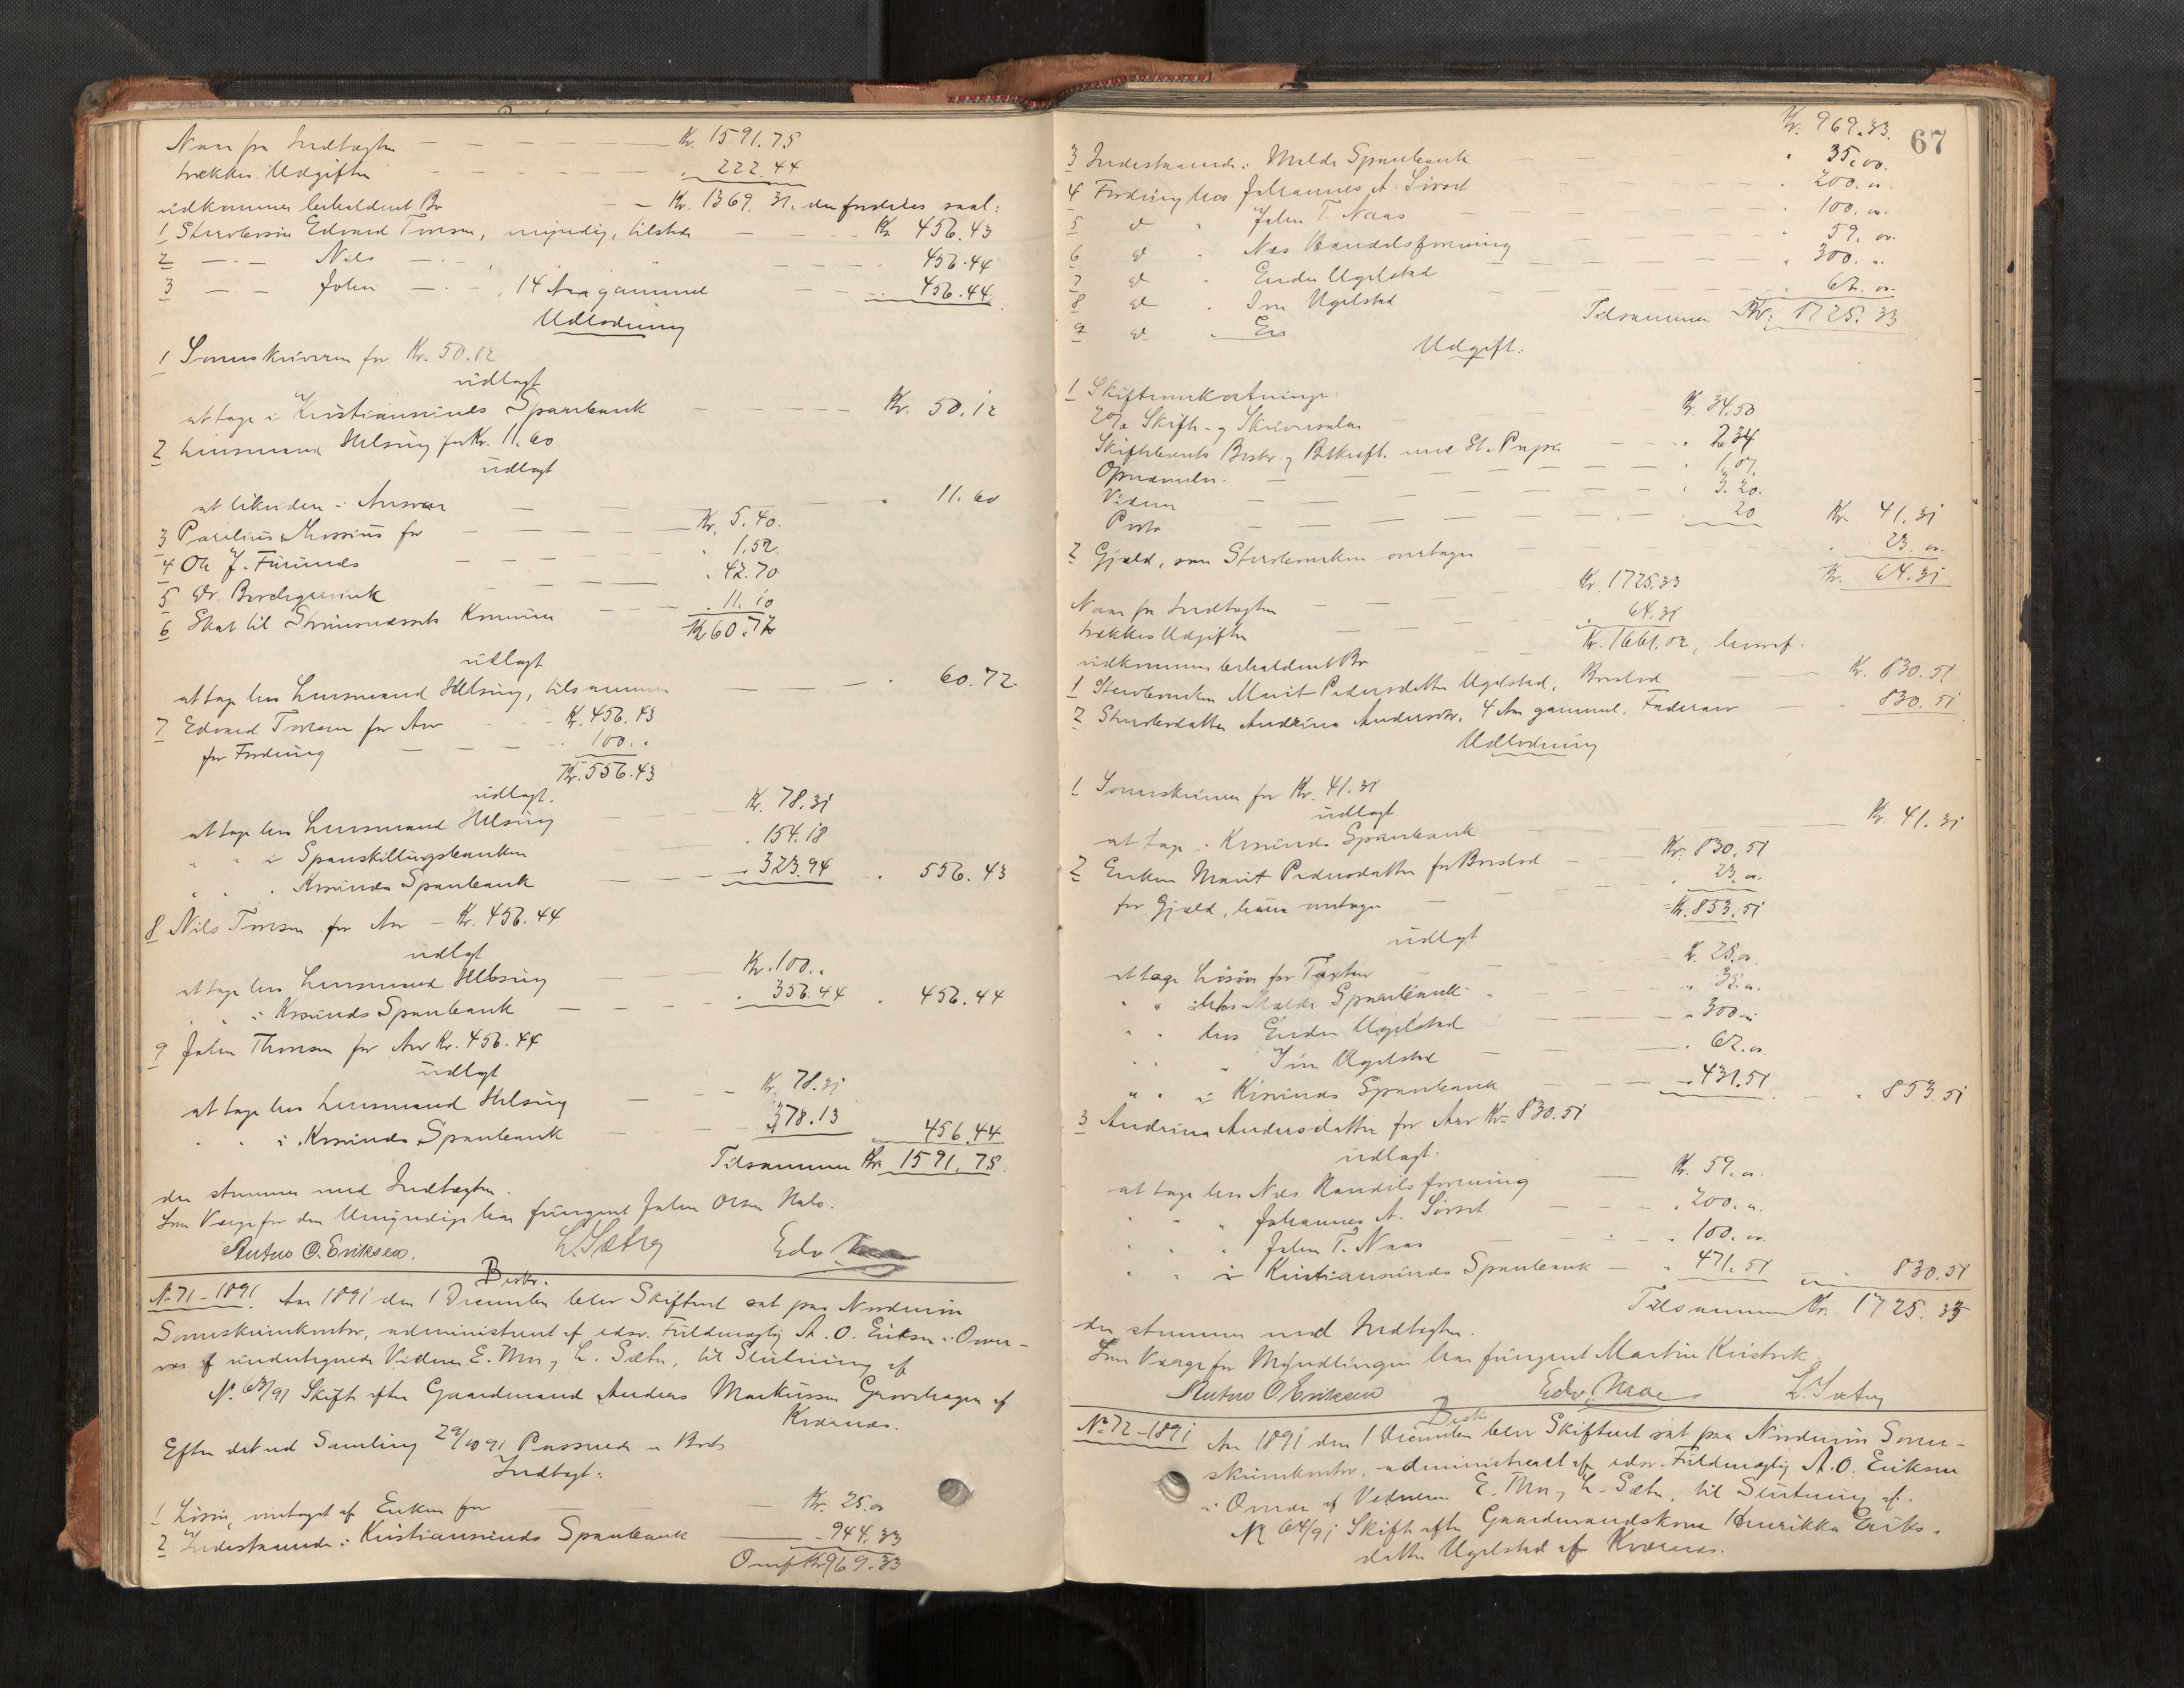 Naar fra Indtægten — Kr. 1591.75
trækkes Udgiften — 222.44
udkommer beholdent Bo — Kr. 1369.31. der fordeles saal:
1 Stervbosøn Edvard Toresen, myndig, tilstede — Kr. 456.43
2 —"— Nils —"— 456.44
3 —"— John —"—, 14 Aar gammel — 456.44
Udlodning
1 Sorenskriveren for Kr. 50.12
udlagt
at tage i Kristiansunds Sparebank — Kr. 50.12
2 Lensmand Helsing for Kr. 11.60
udlagt
at likvidere i Ansvar — 11.60
3 Parelius Mossius for — Kr. 5.40.
4 Ole J. Furunes — 1.52.
5 Dr. Borchgrevink — 42.70
6 Skat til Strømsnæssets Kommune — 11.10
Kr. 60.72
udlagt
at tage hos Lensmand Helsing, tilsammen — 60.72.
7 Edvard Toresen for Arv — Kr. 456.43
for Fordring — 100."
Kr. 556.43
udlagt.
at tage hos Lensmand Helsing — Kr. 78.31
" " i Spareskillingsbanken — 154.18
" " " Krsunds Sparebank — 323.94 " 556.43
8 Nils Toresen for Arv — Kr. 456.44
udlagt
at tage hos Lensmand Helsing — Kr. 100."
" " i Krsunds Sparebank — 356.44 " 456.44
9 John Thoresen for Arv Kr. 456.44
udlagt
at tage hos Lensmand Helsing — Kr. 78.31
" " i Krsunds Sparebank — 378.13 456.44
Tilsammen Kr. 1591.75.
der stemmer med Indtægten.
Som Værge for den Umyndige har fungeret John Olsen
Anton O. Eriksen. L. Sætre Edv.
No 71 - 1891. Beskr. Aar 1891 den 1 December blev Skifteret sat paa Nordmøre
Sorenskriverkontor, administreret af edsv. Fuldmægtig A. O. Eriksen i Over-
vær af undertegnede Vidner E. Moe og L. Sætre, til Slutning af
No. 63/91 Skifte efter Gaardmand Anders Markussen af
Kværnes.
Efter det ved Samling 29/10 91 Passerede er Boets
Indtægt:
1 Løsøre, overtaget af Enken for — Kr. 25.00
2 Indestaaende i Kristiansunds Sparebank — 944.33
Overf. Kr. 969.33
67
Kr. 969.33.
3 Indestaaende i Molde Sparebank — 35.00.
4 Fordring hos Johannes A. Sørset — 200.00.
5 do " John T. Naas — 100.00.
6 do " Næs Handelsforening — 59.00.
7 do " Ender Ugelstad — 300."
8 do " Iver Ugelstad — 62.00.
9 do " En
Tilsammen Kr. 1725.33
Udgift:
1 Skifteomkostninger:
2% Skifte- og Skriversalær — Kr. 34.50
Skiftebrevets Beskr. og Bekræft. med St. Papir — 2.34
Opnævnelse — 1.07.
Vidner — 3.20.
Porto — 20 Kr. 41.31
2 Gjæld, som Stervboenken overtager — 23.00.
Kr. 64.31
Naar fra Indtægten — Kr. 1725.33
trækkes Udgiften — 64.31
udkommer beholdent Bo — Kr. 1661.02, hvoraf
1 Stervboenken Marit Pedersdatter Ugelstad, Boeslod — Kr. 830.51
2 Stervbodatter Andrina Andersdtr., 4 Aar gammel, Faderarv — 830.51
Udlodning
1 Sorenskriveren for Kr. 41.31
udlagt
at tage i Krsunds Sparebank — Kr. 41.31
2 Enken Marit Pedersdatter for Boeslod — Kr. 830.51
for Gjæld, hun overtager — 23.00.
Kr. 853.51
udlagt
at tage Løsøre for Taxten — Kr. 25.00
" " i Molde Sparebank — 35.00.
" " hos Ender Ugelstad — 300.00
" " " Iver Ugelstad — 62.00.
" " i Krsunds Sparebank — 431.51 " 853.51
3 Andrina Andersdatter for Arv Kr. 830.51
udlagt.
at tage hos Næs Handelsforening — Kr. 59.00.
" " " Johannes A. Sørset — 200.00.
" " " John T. Naas — 100.00.
" " i Kristiansunds Sparebank — 471.51 " 830.51
Tilsammen Kr. 1725.33
der stemmer med Indtægten.
Som Værge for Myndlingen har fungeret Martin
Anton O Eriksen Edv. Moe L. Sætre
No 72 - 1891 Beskr. Aar 1891 den 1 December blev Skifteret sat paa Nordmøre Soren-
skriverkontor, administreret af edsv. Fuldmægtig A. O. Eriksen
i Overvær af Vidnerne E. Moe og L. Sætre, til Slutning af.
No 64/91 Skifte efter Gaardmandskone Henrikka Eriks-
datter Ugelstad af Kværnes.